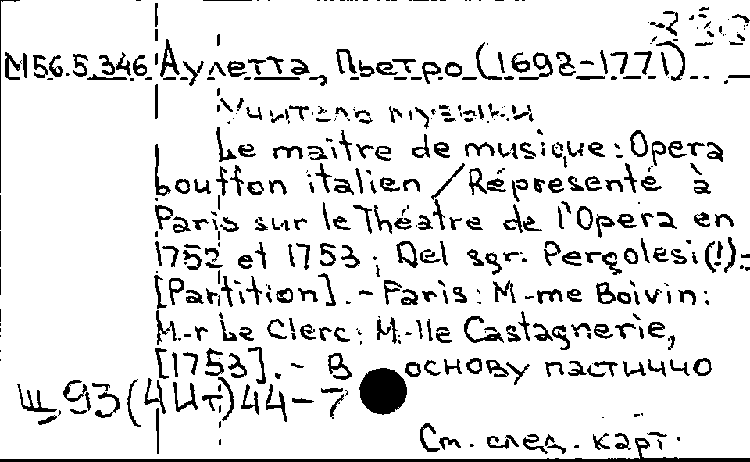 М56.5.346 Аулетта, Пьетро (1698-1771)
Учитель музыки
Le maitre de musique: Opera
bouffon italien / Réprésenté à
Paris sur le Théatre de l'Opera en
1752 et 1753; Del sgr. Pergolesi (!).-
[Partition]. - Paris: M-me Boivin:
M-r Le Clerc: M-lle Castagnerie,
[1753]. - В основу пастиччо
Щ93(4Ит)44-7
См. след. карт.